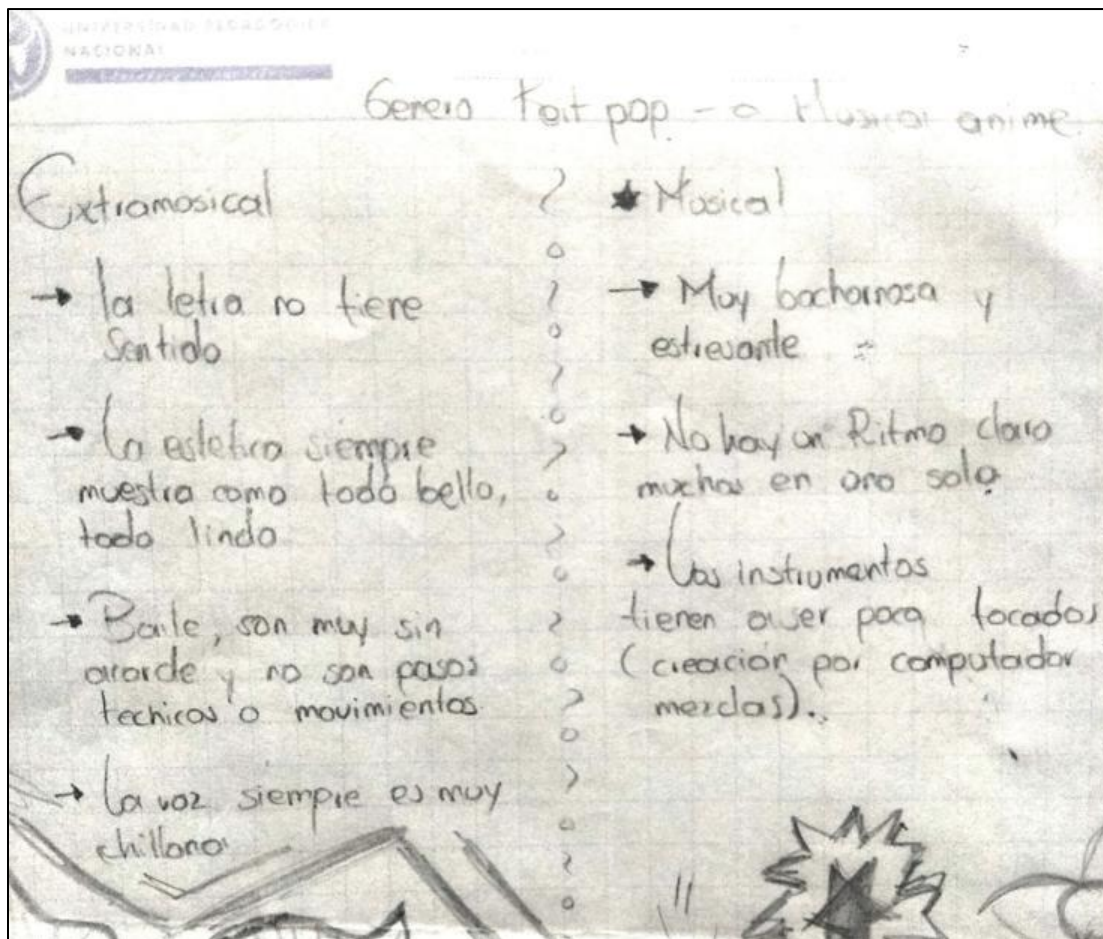 UNIVERSIDAD PEDAGOGICA
NACIONAL
Genero pop - o Musical anime
Extramosical
→ la letra no tiene
Sentido
→ La estetica siempre
muestra como todo bello,
todo lindo
→ Baile, son muy sin
acorde y no son pasos
techicos o movimientos
→ La voz siempre es muy
chillona
★ Mosical
→ Muy bochornosa y
estresante
→ No hay un Ritmo claro
muchos en uno solo
→ Los instrumentos
tienen a ser poco tocados
(creación por computador
mezclas).